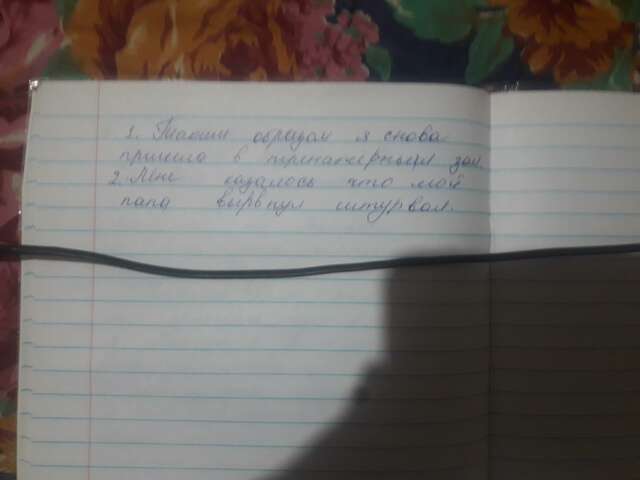 1. Таким образом я снова
пришла в тренажерный зал.
2. Мне казалось что мой
папа вырвнул штурвал.